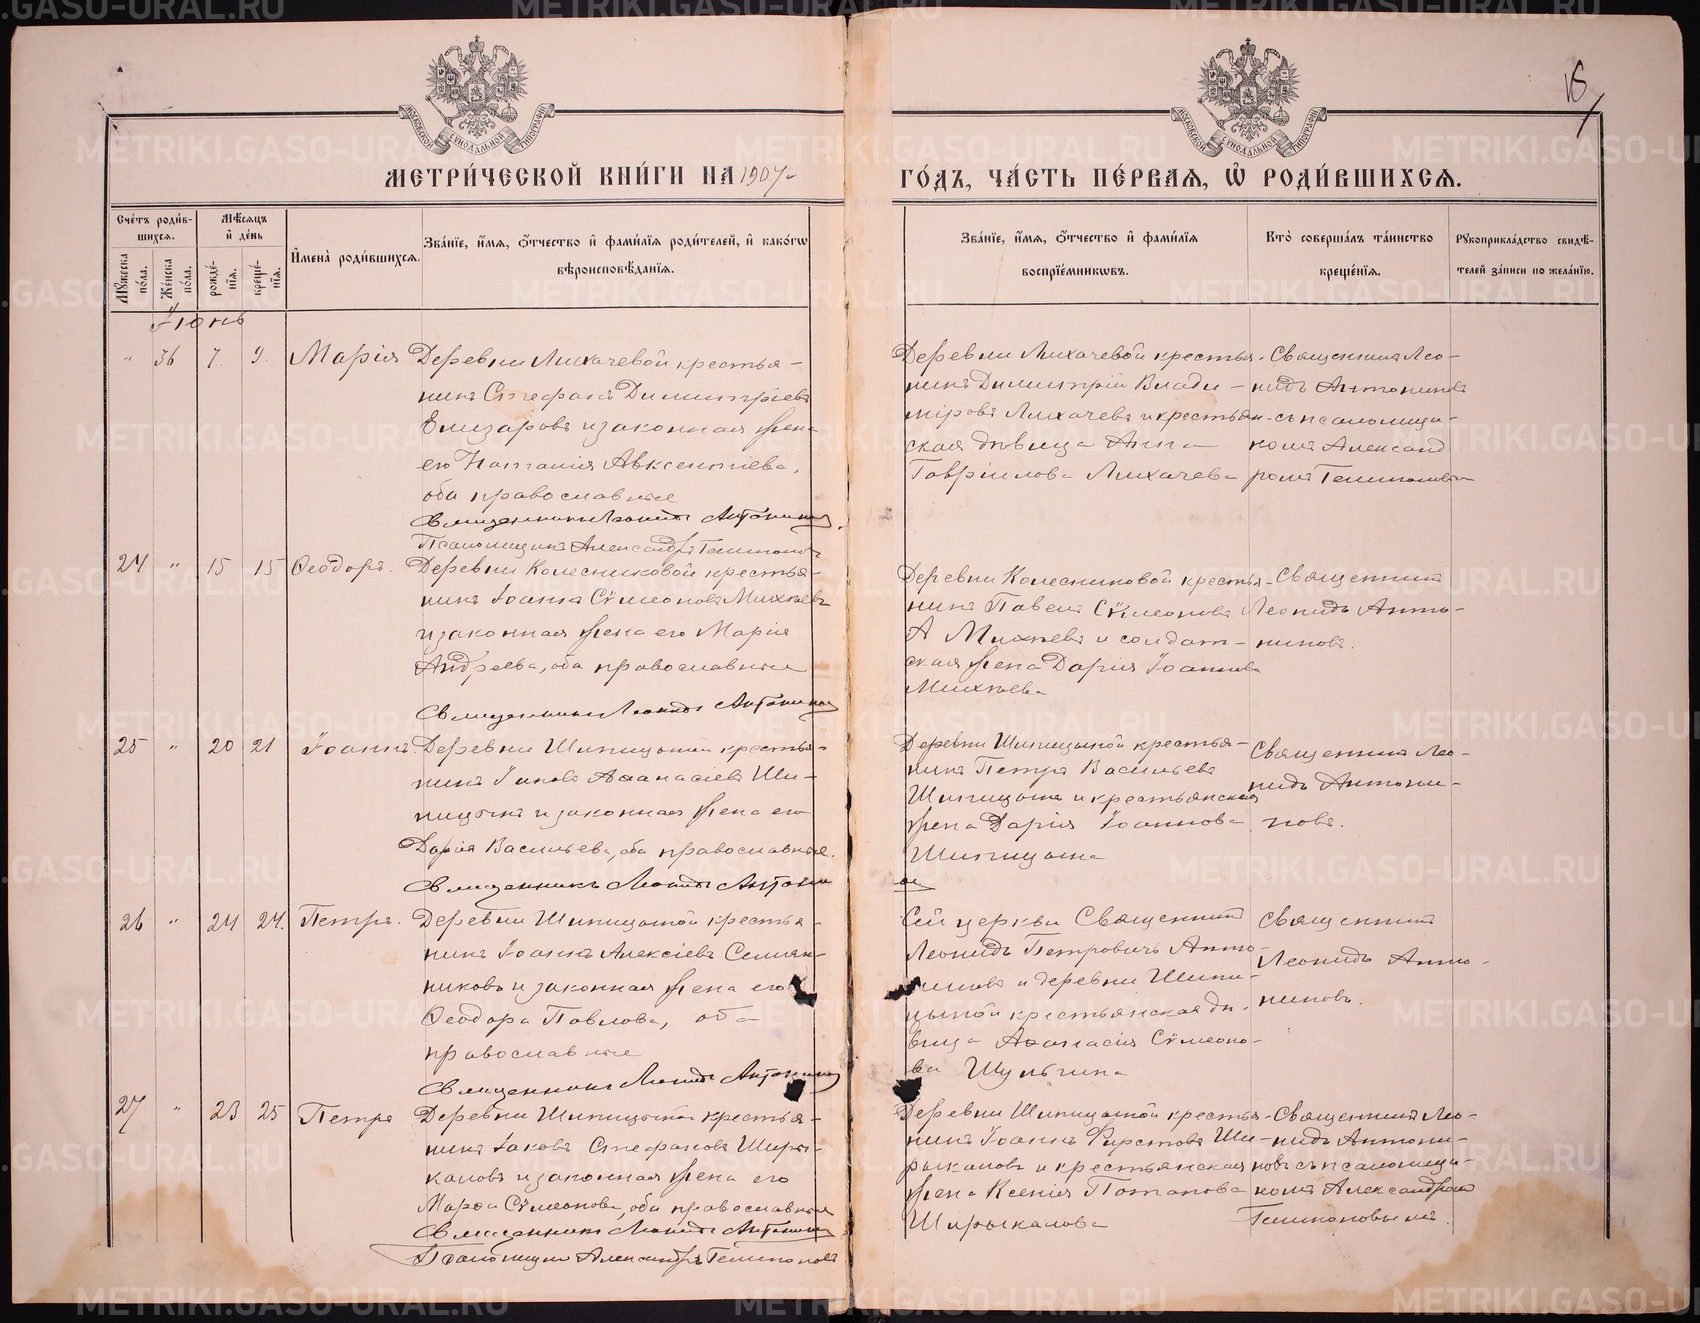 18
МОСКОВСКОЙ СУНОДАЛЬНОЙ ТИПОГРАФІИ
МОСКОВСКОЙ СУНОДАЛЬНОЙ ТИПОГРАФІИ
МЕТРИ́ЧЕСКОЙ КНИ́ГИ НА 1907
ГО́ДЪ, ЧА́СТЬ ПЕ́РВАЯ, Ѽ РОДИ́ВШИХСЯ.
Сче́тъ роди́в-
шихся.
Мꙋ́жеска по́ла.
Же́нска по́ла.
Мѣ́сяцъ
и҆ де́нь
рожде́-
нїя.
креще́-
нїя.
И҆мена̀ роди́вшихся.
Зва́нїе, и҆́мя, ѻ҆́тчество и҆ фами́лїя роди́телей, и҆ како́гѡ
вѣроисповѣ́данїя.
Зва́нїе, и҆́мя, ѻ҆́тчество и҆ фами́лїя
воспрїе́мникѡвъ.
Кто̀ соверша́лъ та́инство
креще́нїя.
Рꙋкоприкла́дство свидѣ́-
телей за́писи по жела́нїю.
Іюнь
" 36 7. 9. Марія
Деревни Лихачевой крестья-
нинъ Стефанъ Димитріевъ
Елизаровъ и законная жена
его Наталія Авксентіева,
оба православные
Священникъ Леонидъ Антониновъ
Псаломщикъ Александръ
Деревни Лихачевой крестья-
нинъ Димитрій Влади-
міровъ Лихачевъ и крестьян-
ская дѣвица Анна
Гавріилова Лихачева
Священникъ Лео-
нидъ Антониновъ
съ псаломщи-
комъ Александ
ромъ
24 " 15 15 Ѳеодоръ.
Деревни Колесниковой крестья-
нинъ Іоаннъ Сѵмеоновъ Михѣевъ
и законная жена его Марія
Андреева, оба православные
Священникъ Леонидъ Антониновъ
Деревни Колесниковой крестья-
нинъ Павелъ Сѵмеоновъ
Михѣевъ и солдат-
ская жена Дарія Іоаннова
Михѣева
Священникъ
Леонидъ Анто-
ниновъ.
25 " 20 21 Іоаннъ.
Деревни Шипицыной крестья-
нинъ Іаковъ Аѳанасіевъ Ши-
пицынъ и законная жена его
Дарія Васильева, оба православные.
Священникъ Леонидъ Антонин
Деревни Шипицыной крестья-
нинъ Петръ Васильевъ
Шипицынъ и крестьянская
жена Дарія Іоаннова
Шипицына
Священникъ Лео-
нидъ Антони-
новъ.
26 " 24 24. Петръ.
Деревни Шипицыной крестья-
нинъ Іоаннъ Алексіевъ Семян-
никовъ и законная жена его
Ѳеодора Павлова, оба
православные
Священникъ Леонидъ Антониновъ
Сей церкви Священникъ
Леонидъ Петровичъ Анто-
ниновъ и деревни Шипи-
цыной крестьянская дѣ-
вица Аѳанасія Сѵмеоно-
ва Шульгина
Священникъ
Леонидъ Анто-
ниновъ.
27 " 23 25 Петръ
Деревни Шипицыной крестья-
нинъ Іаковъ Стефановъ Широ-
каловъ и законная жена его
Марѳа Сѵмеонова, оба православные
Священникъ Леонидъ Антониновъ
Псаломщикъ Александръ
Деревни Шипицыной крестья-
нинъ Іоаннъ Ши-
рыкаловъ и крестьянская
жена Ксенія Потапова
Ширыкалова
Священникъ Лео-
нидъ Антони-
новъ съ псаломщи-
комъ Александромъ
METRIKI.GASO-URAL.RU